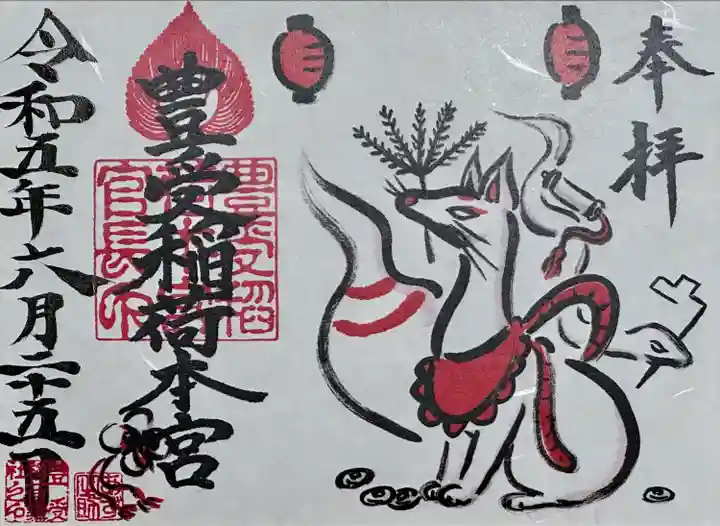 奉拝
豊受稲荷本宮
令和五年六月二十五日